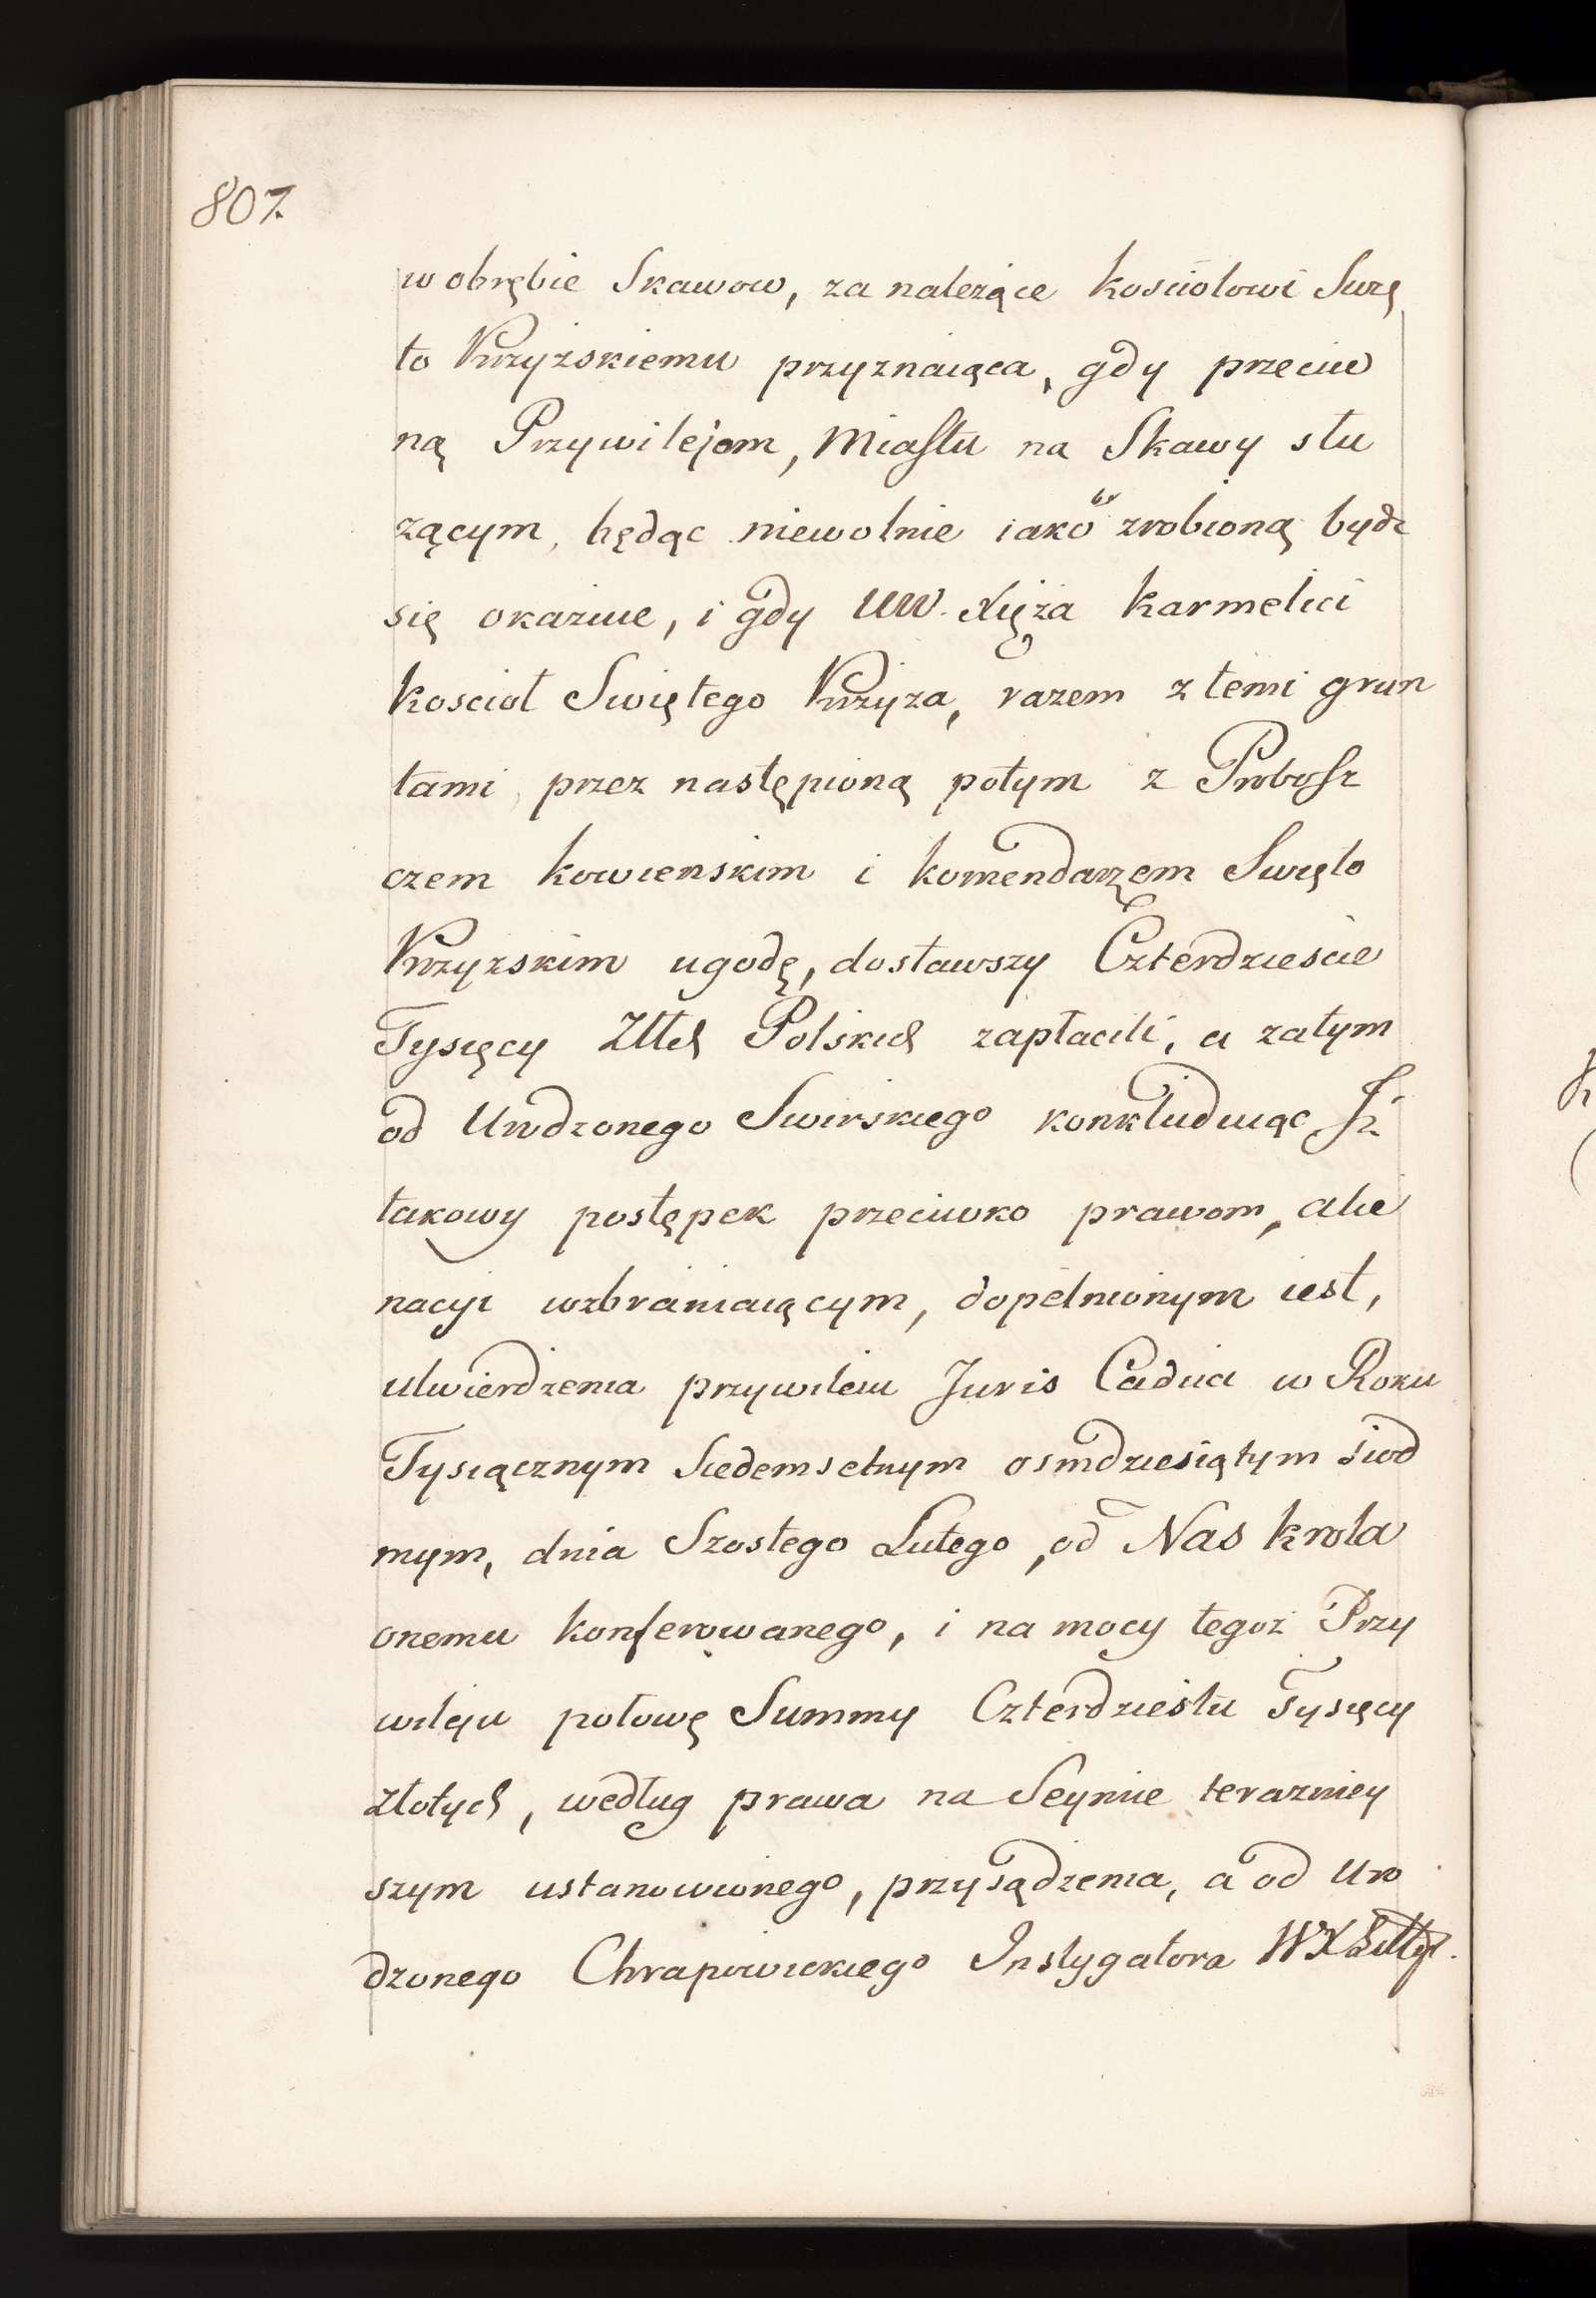 807.
w obrębie Skawow, za należące kosciołowi Swię
to Krzyżskiemu przyznaiąca, gdy przeciw
ną Przywilejom, Miastu na Skawy słu
żącym, będąc niewolnie iako by zrobioną bydz
się okazuie, i gdy UW. Xięża Karmelici
koscioł Swiętego Krzyża, razem z temi grun
tami, przez nastę pioną potym z Probosz
czem kowienskim i komendarzem Swięto
Krzyżskim ugodę, dostawszy Czterdziescie
Tysięcy Złłch Polskich zapłacili, a zatym
od Urodzonego Swirskiego konkluduiąc Jż
takowy postępek przeciwko prawom, alie
nacyi wzbraniaiącym, dopełnionym iest,
utwierdzenia przywileiu Juris Caduci w Roku
Tysiącznym Siedemsetnym osmdziesiątym siod
mym, dnia Szostego Lutego, od Nas krola
onemu konferowanego, i na mocy tegoż Przy
wileju połowę Summy Czterdziestu Tysięcy
złotych, według prawa na Seymie terazniey
szym ustanowionego, przysądzenia, a od Uro
dzonego Chrapowickiego Instygatora WXLittgo.